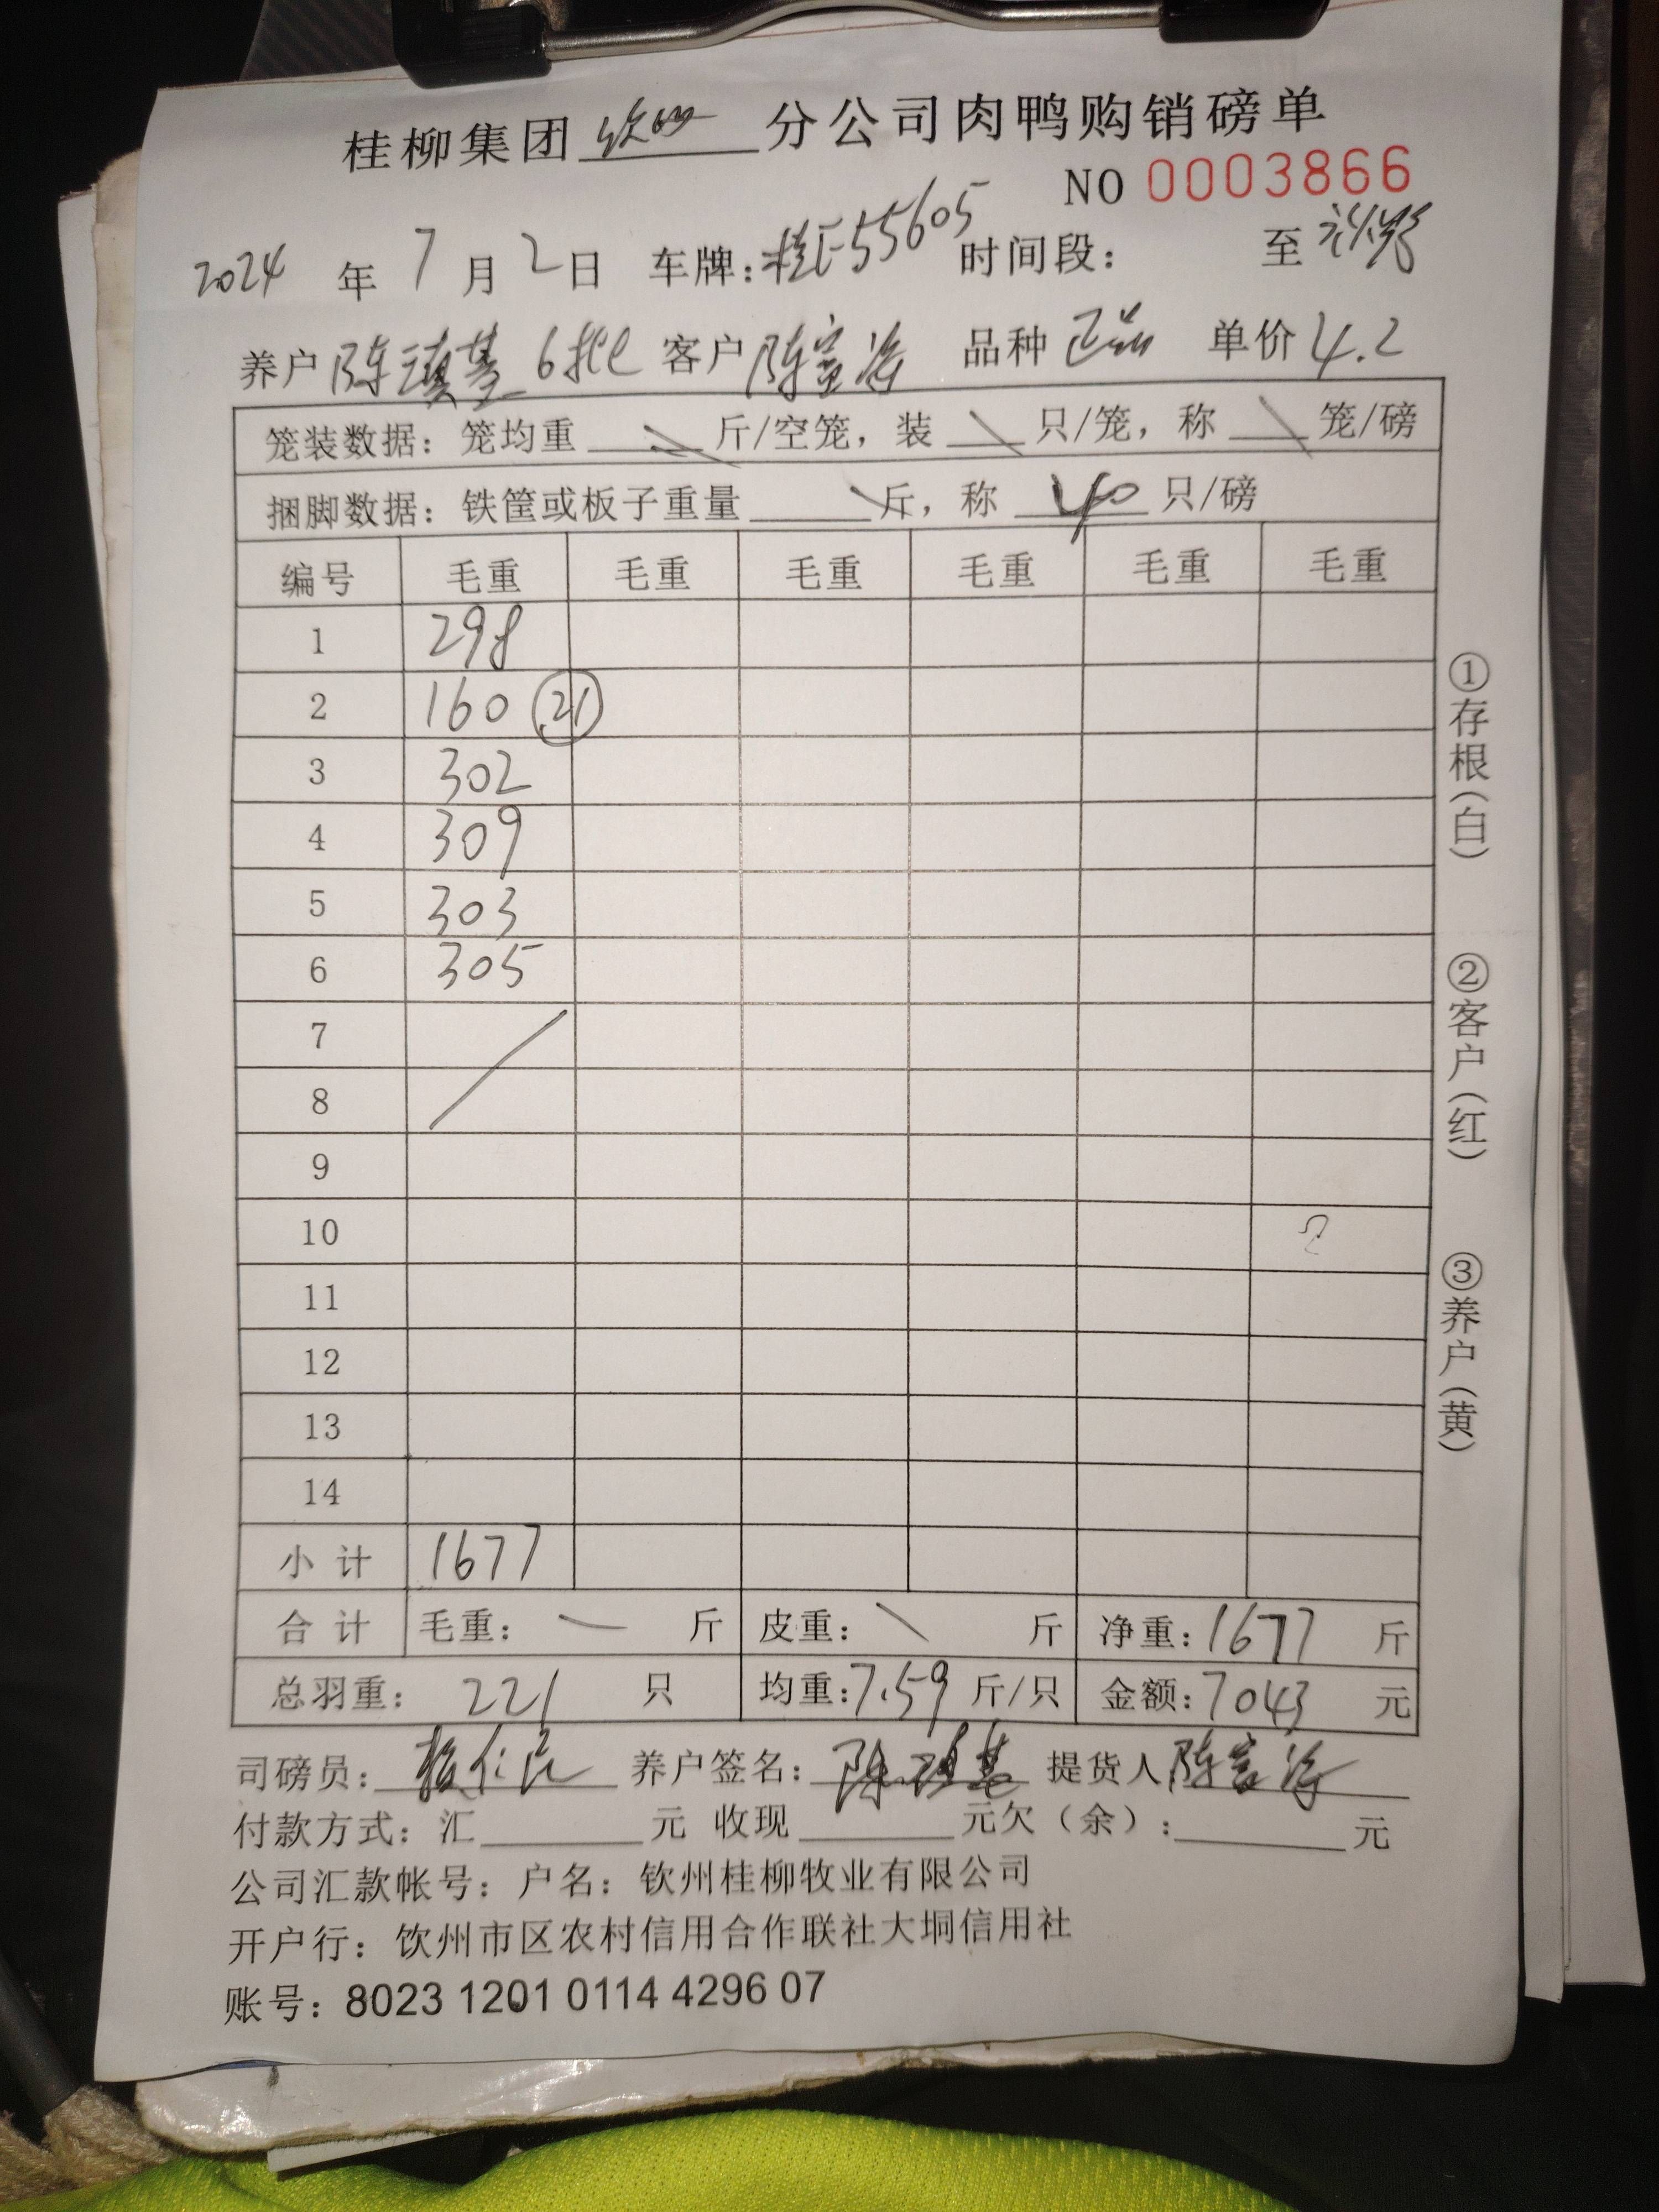 桂柳集团 钦州 分公司肉鸭购销磅单
NO 0003866
2024 年 7 月 2 日 车牌:桂E55605 时间段: 至
养户 陈瑱基 6批 客户 陈富海 品种 正品 单价 4.2
笼装数据: 笼均重 斤/空笼, 装 只/笼, 称 笼/磅
捆脚数据: 铁筐或板子重量 斤, 称 40 只/磅
编号 毛重 毛重 毛重 毛重 毛重 毛重
1 298
2 160 21
3 302
4 309
5 303
6 305
7
8
9
10 2
11
12
13
14
小计 1677
合计 毛重: 斤 皮重: 斤 净重: 1677 斤
总羽重: 221 只 均重: 7.59 斤/只 金额: 7043 元
司磅员: 养户签名: 陈瑱基 提货人 陈富海
付款方式: 汇 元 收现 元欠(余): 元
公司汇款帐号: 户名: 钦州桂柳牧业有限公司
开户行: 饮州市区农村信用合作联社大垌信用社
账号: 8023 1201 0114 4296 07
①存根(白)
②客户(红)
③养户(黄)